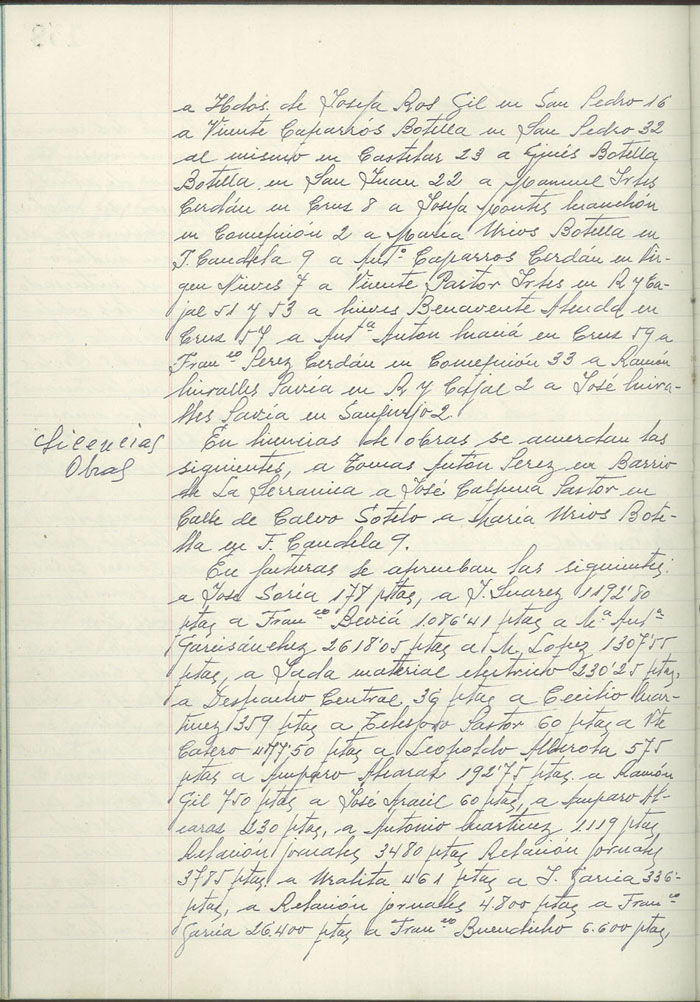 a Hdos. de Josefa Ros Gil en San Pedro 16
a Vicente Caparrós Botella en San Pedro 32
al mismo en Castelar 23 a Ginés Botella
Botella en San Juan 22 a Manuel Irles
Cerdán en Cruz 8 a Josefa Montes Manchón
en Concepción 2 a Maria Urios Botella en
T. Candela 9 a Antº Caparros Cerdán en Vir-
gen Nieves 7 a Vicente Pastor Irles en R y Ca-
jal 51 y 53 a Nieves Benavente en
Cruz 57 a Antª Anton Maciá en Cruz 59 a
Franco Perez Cerdán en Concepción 33 a Ramón
Miralles Pavía en R y Cajal 2 a José Mira-
lles Pavía en Sanjurjo 2
Licencias
Obras
En licencias de obras se acuerdan las
siguientes, a Tomas Antón Perez en Barrio
de La Serranica a José Calpena Pastor en
Calle de Calvo Sotelo a María Urios Bote-
lla en T. Candela 9.
En facturas se aprueban las siguientes:
a Jose Soria 178 ptas, a J. Suarez 1192'80
ptas a Franco Beviá 1.086'41 ptas a Mª Antª
Garcisánchez 2618'05 ptas a M. Lopez 1307'55
ptas, a Sada material electrico 230'25 ptas,
a Despacho Central 36 ptas a Cecilio Mar-
tinez 1359 ptas a Telesforo Pastor 60 ptas a Vte
Casero 477'50 ptas a Leopoldo Alberola 575
ptas a Amparo Alcaraz 192'75 ptas. a Ramón
Gil 750 ptas a José Aracil 60 ptas, a Amparo Al-
caraz 230 ptas, a Antonio Martinez 1119 ptas
Relación jornales 3480 ptas Relación jornales
3785 ptas, a Uralita 461 ptas a J. Garcia 336-
ptas, a Relación jornales 4.800 ptas a Franco
Garcia 26.400 ptas a Franco Buendicho 6.600 ptas,